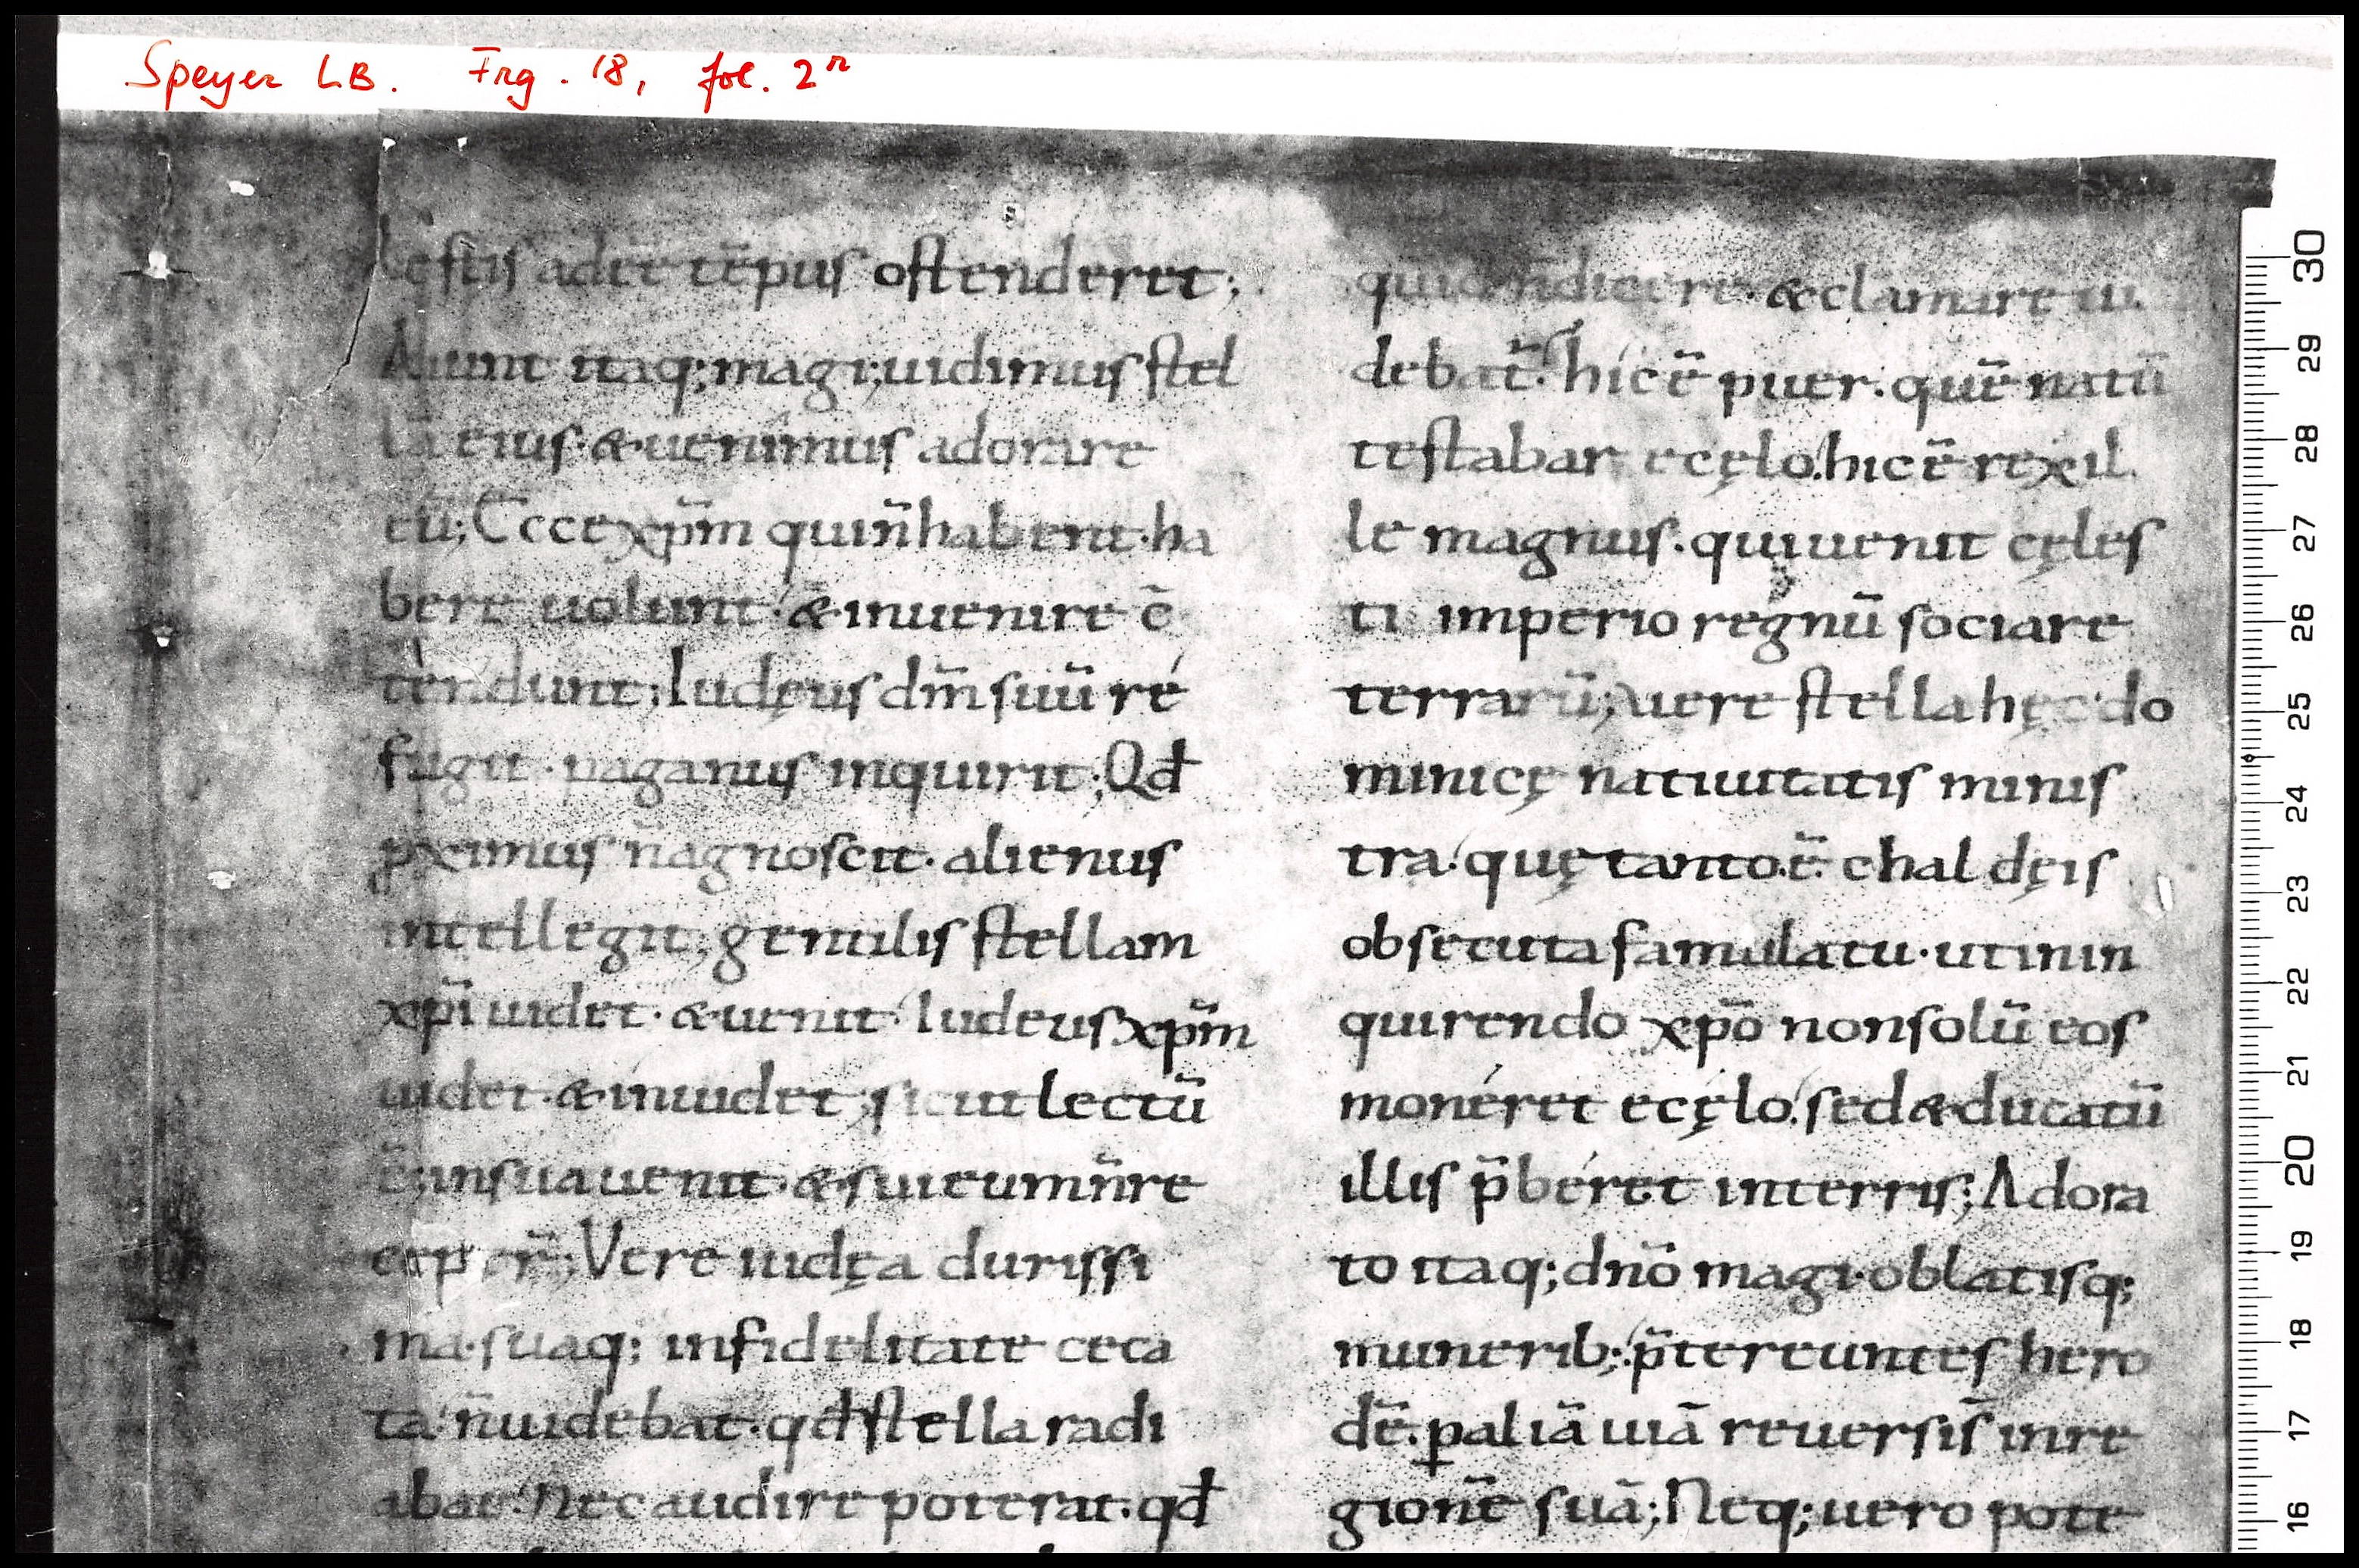 Speyer LB. Frg. 18, fol. 2r
lęstis adee tēpus ostenderet;
Aiunt itaq; magi; uidimus stel
lā eius · & uenimus adorare
eū; Ecce xp̄m qui n̄ habent · ha
bere uolunt · & inuenire c̄
tendunt; Iudęus dm̄ suū re
fugit · paganus inquirit; Qđ
ꝓximus n̄ agnoscit · alienus
intellegit; gentilis stellam
xp̄i uidet · & uenit · Iudeus xp̄m
uidet · & inuidet; sicut lectū
ē; in sua uenit · & sui eum n̄ re
ceper̄; Vere iudęa durissi
ma · suaq; infidelitate ceca
ta · n̄ uidebat · qđ stella radi
abat · Nec audire poterat · qđ
& clamare ui
debat̄ · hic ē puer · quē natū
testabar e cęlo · hic ē rex il
le magnus · qui uenit cęles
ti imperio regnū sociare
terrarū; uere stella hęc do
minicę natiuitatis minis
tra · quę tanto ē chaldęis
obsecuta famulatu · ut in in
quirendo xp̄o non solū eos
moneret e cęlo · sed & ducatū
illis p̄beret in terris; Adora
to itaq; dn̄o magi · oblatisq;
munerib; · p̄tereuntes hero
dē · ꝑ aliā uiā reuersi s̄ in re
gionē suā; Neq; uero pote
30
29
28
27
26
25
24
23
22
21
20
19
18
17
16